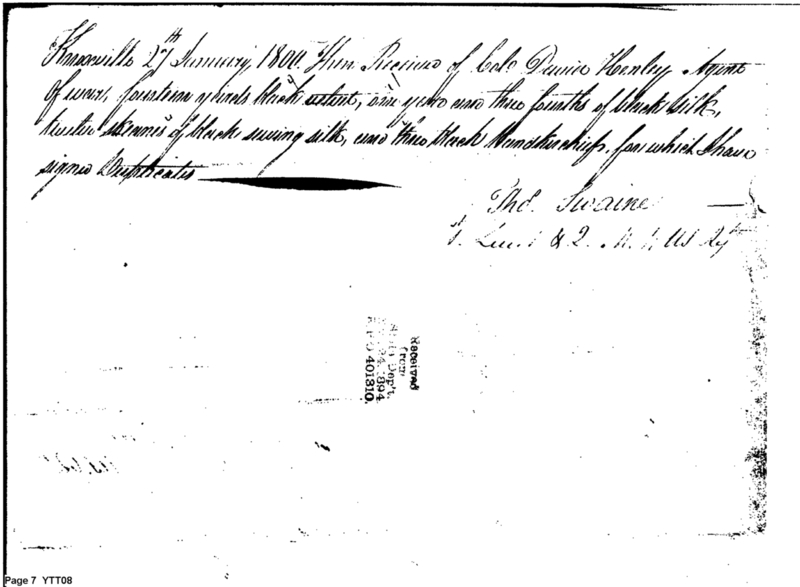 Knoxville 27th January, 1800. Then Received of Colo David Henley Agent
of war, fourteen yards black, one yard and three fourths of black silk,
twelve skeines of black sewing silk, and three black Handkerchiefs, for which I have
signed Duplicates
Tho.s Swaine
Lieut & 2. M.
Received
from
Dep't.
401810.
Page 7 YTT08